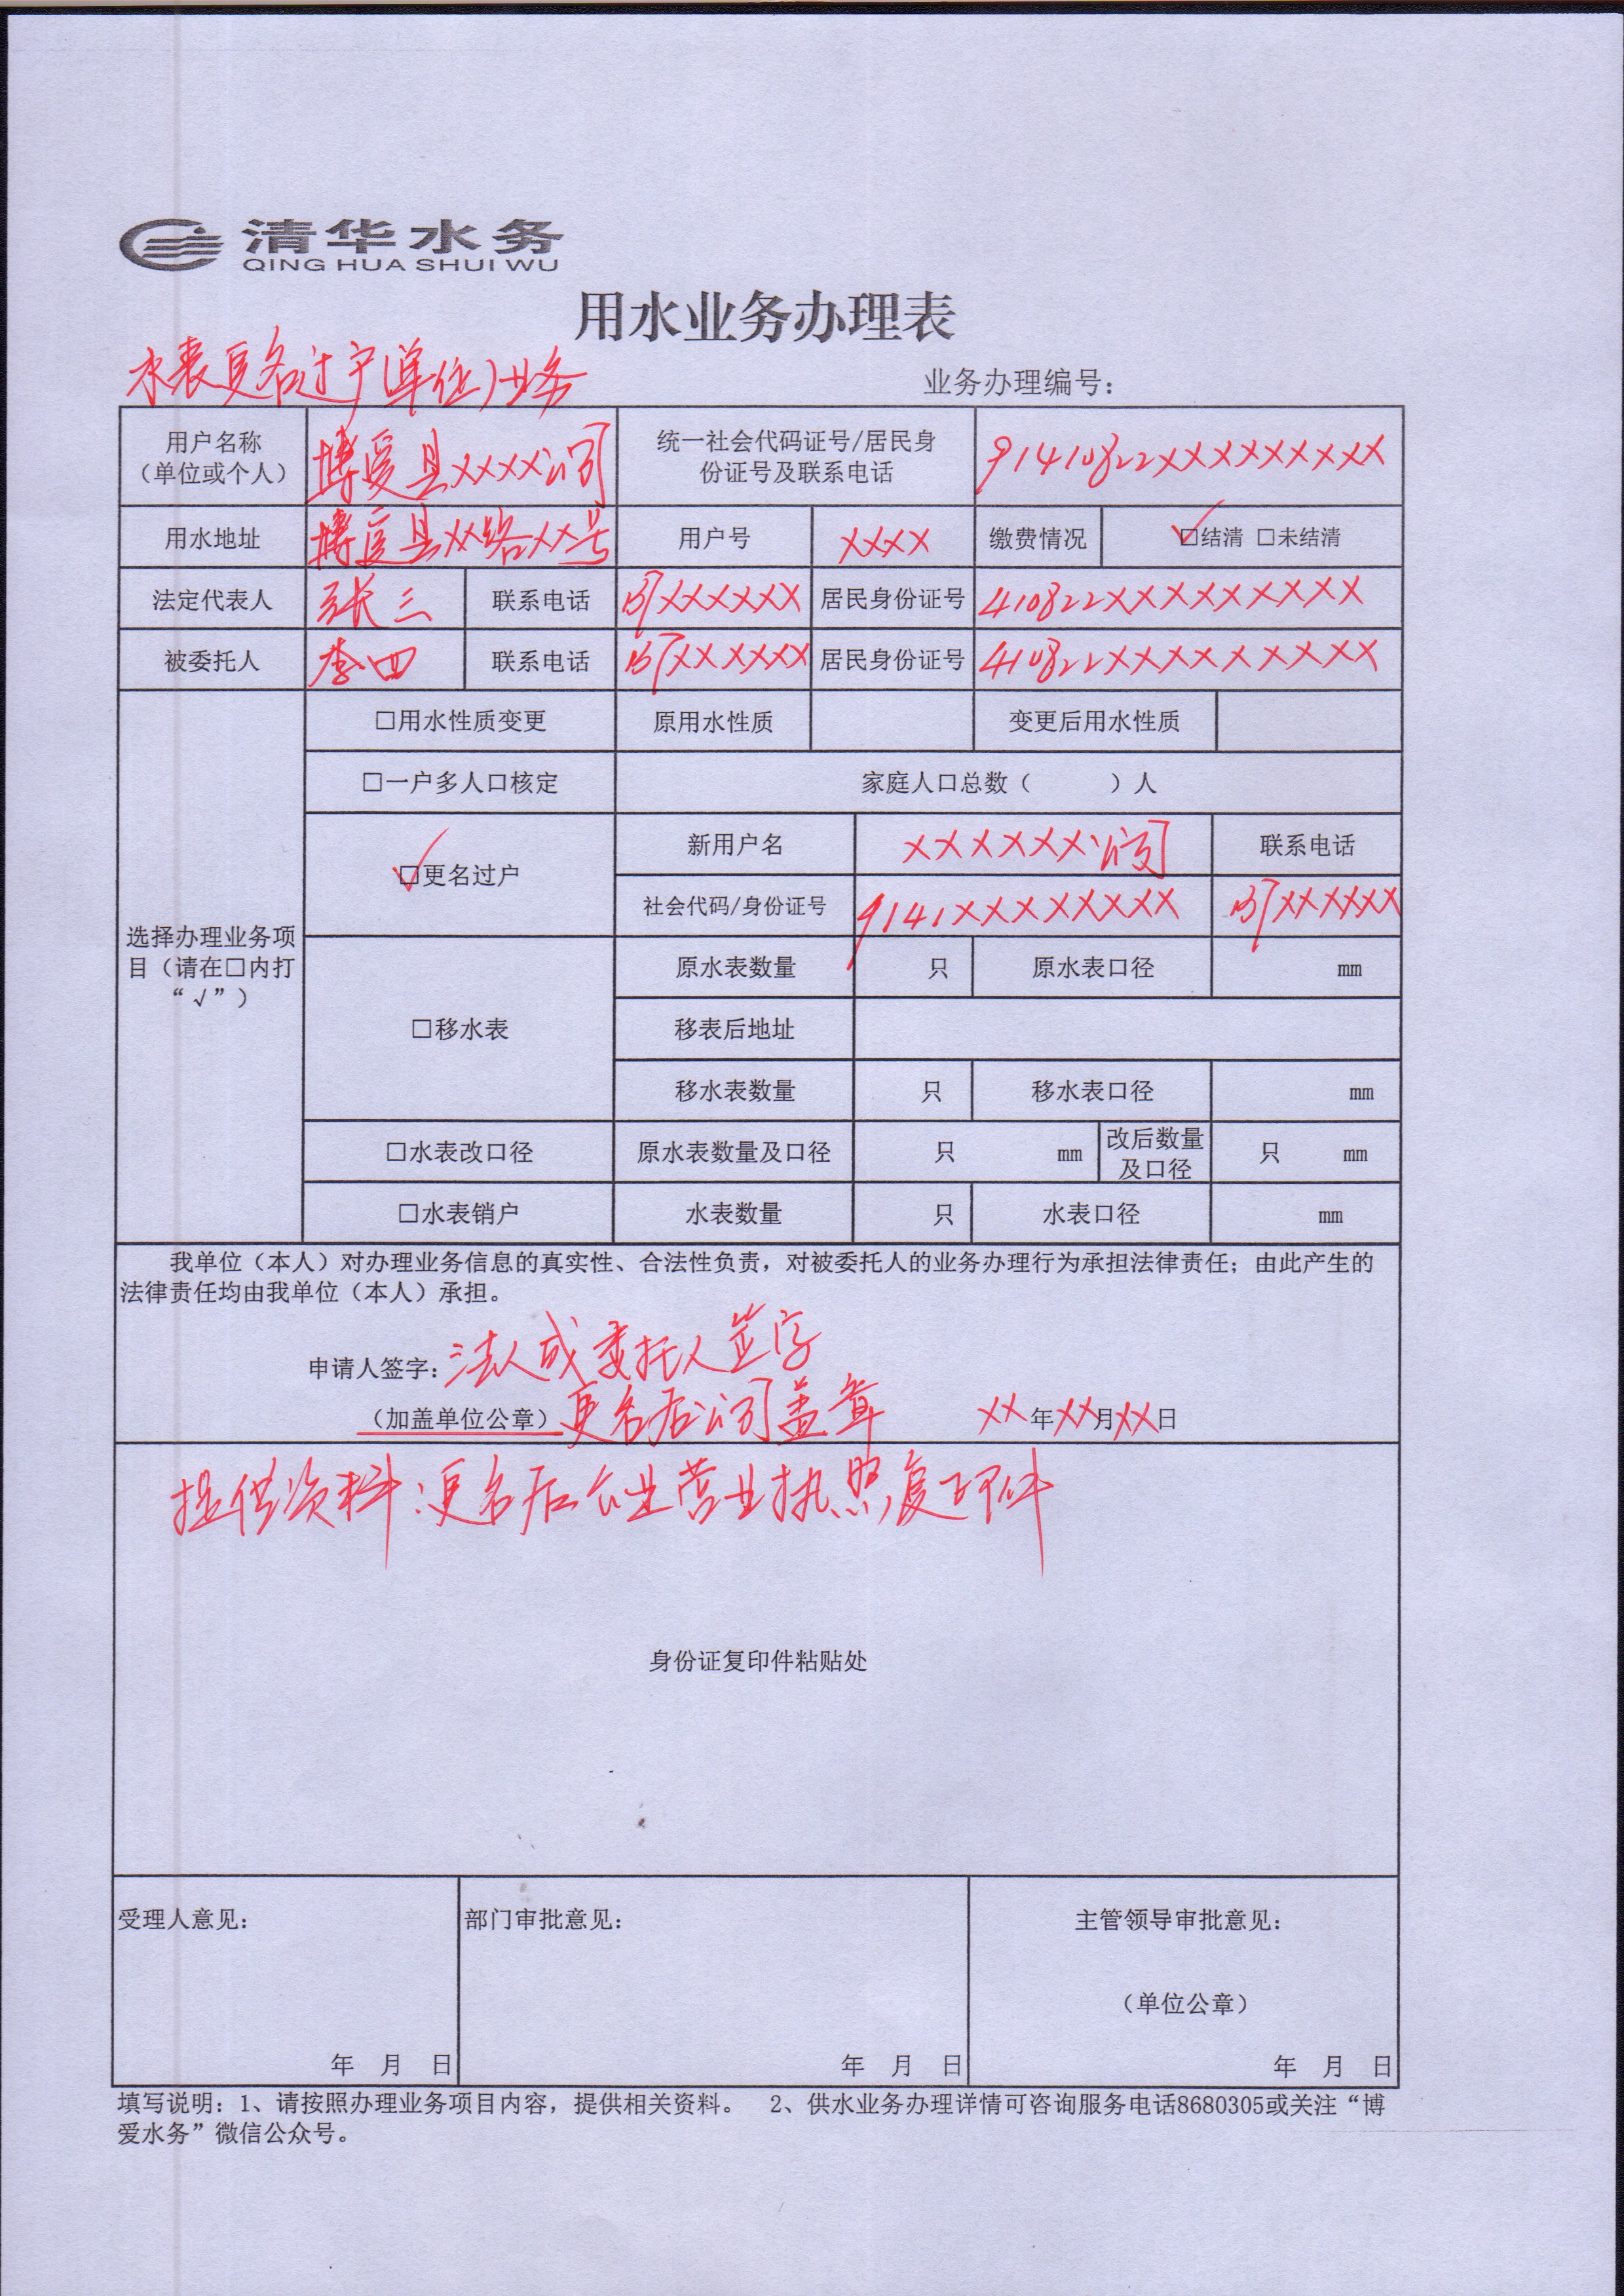 清华水务
QING HUA SHUI WU
用水业务办理表
水表更名过户(单位)业务
业务办理编号：
用户名称
（单位或个人）
博爱县××××公司
统一社会代码证号/居民身
份证号及联系电话
91410822×××××××××
用水地址
博爱县××路××号
用户号
××××
缴费情况
☑结清 □未结清
法定代表人
张三
联系电话
137××××××
居民身份证号
410822×××××××××
被委托人
李四
联系电话
137××××××
居民身份证号
410822×××××××××
选择办理业务项
目（请在□内打
“√”）
□用水性质变更
原用水性质
变更后用水性质
□一户多人口核定
家庭人口总数（ ）人
☑更名过户
新用户名
××××××公司
联系电话
社会代码/身份证号
9141××××××××
137××××××
□移水表
原水表数量
只
原水表口径
mm
移表后地址
移水表数量
只
移水表口径
mm
□水表改口径
原水表数量及口径
只 mm
改后数量
及口径
只 mm
□水表销户
水表数量
只
水表口径
mm
我单位（本人）对办理业务信息的真实性、合法性负责，对被委托人的业务办理行为承担法律责任；由此产生的
法律责任均由我单位（本人）承担。
申请人签字：法人或委托人签字
（加盖单位公章）更名后公司盖章 ××年××月××日
提供资料：更名后企业营业执照复印件
身份证复印件粘贴处
受理人意见：
年 月 日
部门审批意见：
年 月 日
主管领导审批意见：
（单位公章）
年 月 日
填写说明：1、请按照办理业务项目内容，提供相关资料。 2、供水业务办理详情可咨询服务电话8680305或关注“博
爱水务”微信公众号。